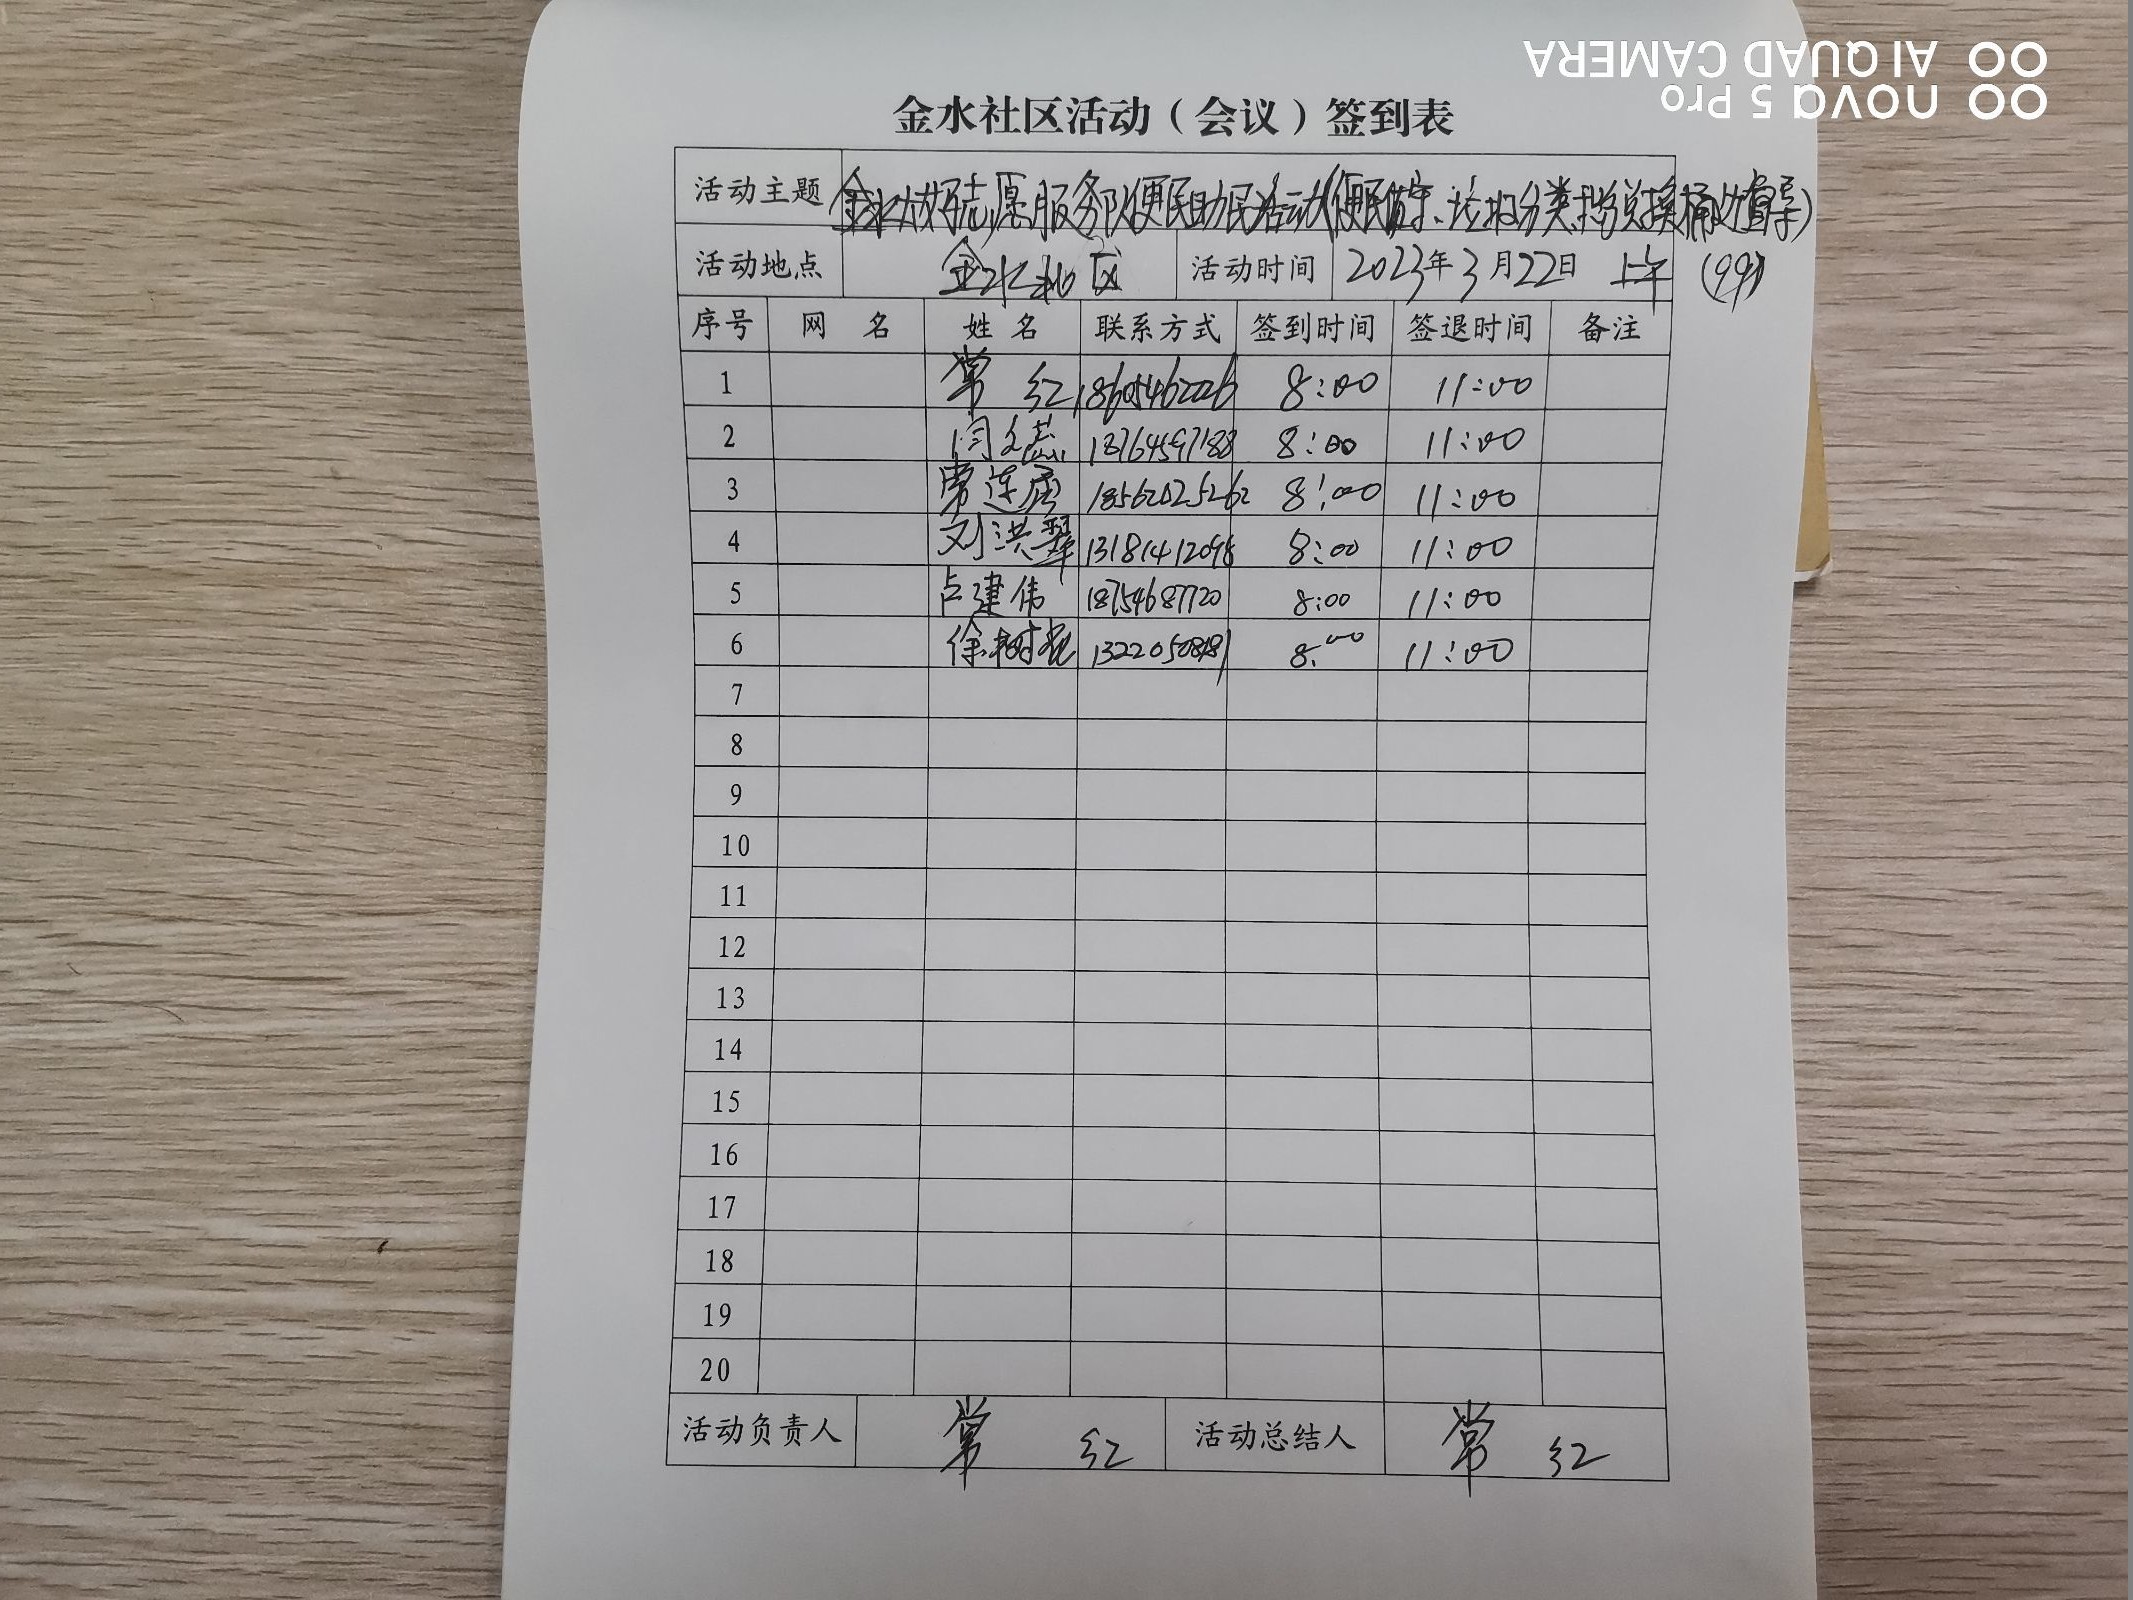 AI QUAD CAMERA
nova 5 Pro
金水社区活动（会议）签到表
活动主题 金水 好志愿服务队便民助民活动(便民 、垃圾分类积分兑换桶边督导)
活动地点 金水社区 活动时间 2023年3月22日 上午 (99)
序号 网 名 姓 名 联系方式 签到时间 签退时间 备注
1 常 红 18605462226 8:00 11:00
2 闫 燕 8:00 11:00
3 常连 18562025262 8:00 11:00
4 刘洪翠 13181412098 8:00 11:00
5 占建伟 18754687720 8:00 11:00
6 徐树 8:00 11:00
7
8
9
10
11
12
13
14
15
16
17
18
19
20
活动负责人 常 红 活动总结人 常 红